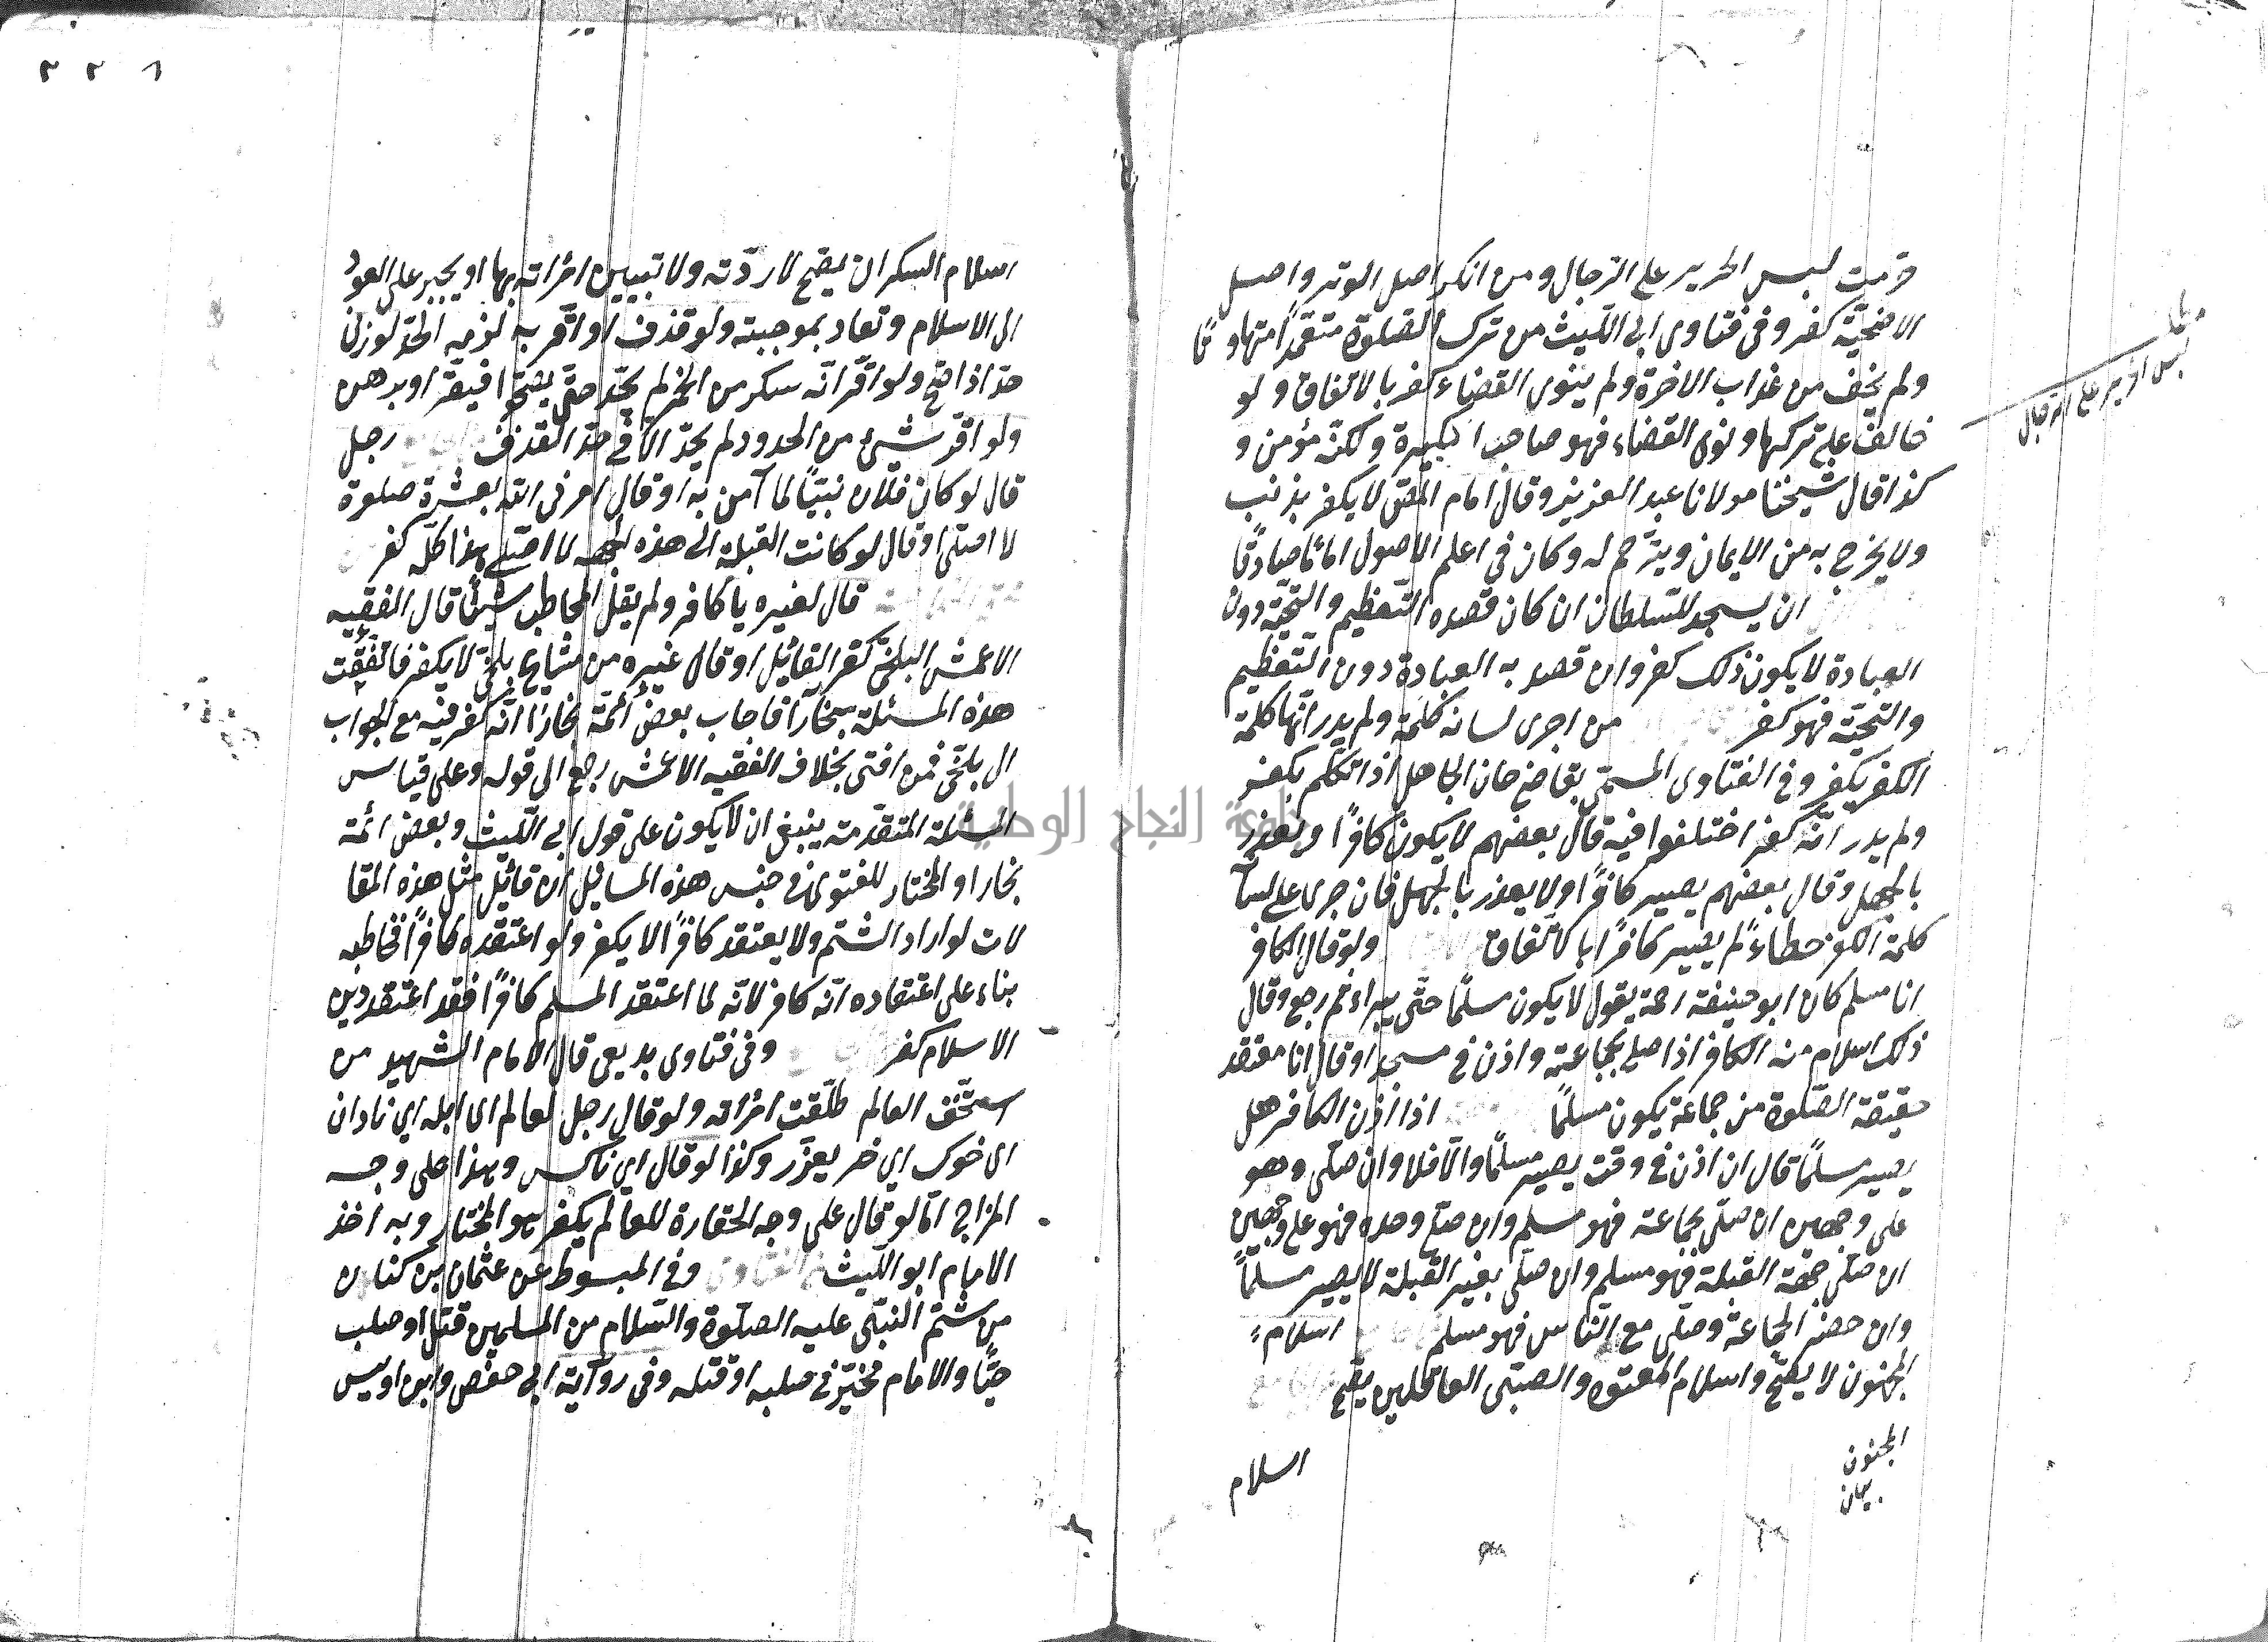 حرمت لبس الحرير على الرّجال ومن انكر اصل الوتر واصل
الاضحيّة كفر وفى فتاوى ابى اللّيث من ترك الصّلوة متعمّدًا متهاونًا
ولم يخف من عذاب الاخرة ولم ينوى القضاء كفر بالاتفاق ولو
خالف على تركها ونوى القضاء فهو صاحب الكبيرة ولكنّه مؤمن و
كذا قال شيخنا مولانا عبد العزيز وقال امام المفتى لا يكفر بذنب
ولا يخرج به من الايمان ويترحم له وكان فى اعلم الاصول اماما صادقًا
ان يسجد للسّلطان ان كان قصده التّعظيم والتّحيّة دون
العبادة لا يكون ذلك كفر وان قصد به العبادة دون التّعظيم
والتحيّة فهو كفر من اجرى لسانه كلمة ولم يدر انّها كلمة
الكفر يكفر وفى الفتاوى المسمّى بقاضي خان الجاهل اذا تكلم بكفر
ولم يدر انّه كفر اختلفوا فيه قال بعضهم لا يكون كافرًا ويعذر
بالجهل وقال بعضهم يصير كافرًا ولا يعذر بالجهل فان جرى على لسانه
كلمة الكفر خطاءً لم يصير كافرًا بالاتّفاق ولو قال الكافر
انا مسلم كان ابو حنيفة رحمة يقول لا يكون مسلمًا حتّى يبراء ثم رجع وقال
ذلك اسلام منه الكافر اذا صلى بجماعة واذن فى مسجد او قال انا معتقد
حقيقة الصّلوة من جماعة يكون مسلمًا اذا اذن الكافر هل
يصير مسلمًا قال ان اذن فى وقت يصير مسلمًا والّا فلا وان صلّى وهو
على وجهين ان صلّى بجماعة فهو مسلم وان صلّى وحده فهو على وجهين
ان صلّى جهة القبلة فهو مسلم وان صلّى بغير القبلة لا يصير مسلمًا
وان حضر الجماعة وصلّى مع النّاس فهو مسلم اسلام
المجنون لا يصحّ واسلام المعتوه والصبّى العاقلين يصحّ
اسلام
المجنون
بيان
لبس الحرير على الرجال
٢٢١
اسلام السكران يصح لا ردّته ولا تبيين امراته بها او يجبر على العود
الى الاسلام وتعاد بموجبته ولو قذف او اقر به لزمه الحدّ لو زنى
حدّ اذا صح ولو اقرّ انّه سكر من الخمر لم يحدّ حتّى يصحو فيقر او برهن
ولو اقر شئ من الحدود لم يحدّ الّا فى حدّ القذف رجل
قال لو كان فلان نبيًّا لما آمن به او قال امرنى الله بعشرة صلوة
لا اصلّى او قال لو كانت القبلة الى هذه الجهه لما اصلّى هذا كلّه كفر
قال لغيره يا كافر ولم يقل المخاطب شيئا قال الفقيه
الاعمش البلخى كفر القائل او قال غيره من مشايخ بلخى لا يكفر فاتفقت
هذه المسئلة ببخارآ فاجاب بعض ائمّة بخارا انّه كفر فيه مع الجواب
الى بلخى فمن افتى بخلاف الفقيه الاعمش رجع الى قوله وعلى قياس
المسئلة المتقدمته ينبغى ان لا يكون على قول ابى اللّيث وبعض ائمة
بخارا والمختار للفتوى فى جنس هذه المسائل ان قائل مثل هذه المقا
لات لو اراد الشتم ولا يعتقد كافرًا لا يكفر ولو اعتقده كافرًا فخاطبه
بناء على اعتقاده انّه كافر لانّه لما اعتقد المسلم كافرًا فقد اعتقد دين
الاسلام كفر وفى فتاوى بديعى قال الامام الشهيد من
استخّف العالم طلّقت امراته ولو قال رجل لعالم اى ابله اي نادان
اى خوك اي خر يعزّر وكذا لو قال اي ناكس وهذا على وجه
المزاح امّا لو قال على وجه الحقارة للعالم يكفر هو المختار وبه اخذ
الامام ابو اللّيث وفى المبسوط عن عثمان بن كنانه
من شتم النبّى عليه الصلّوة والسّلام من المسلمين قتل او صلب
حيًّا والامام مخيّر فى صلبه او قتله وفى رواية ابى حفص وابن اويس
جامعة النجاح الوطنية